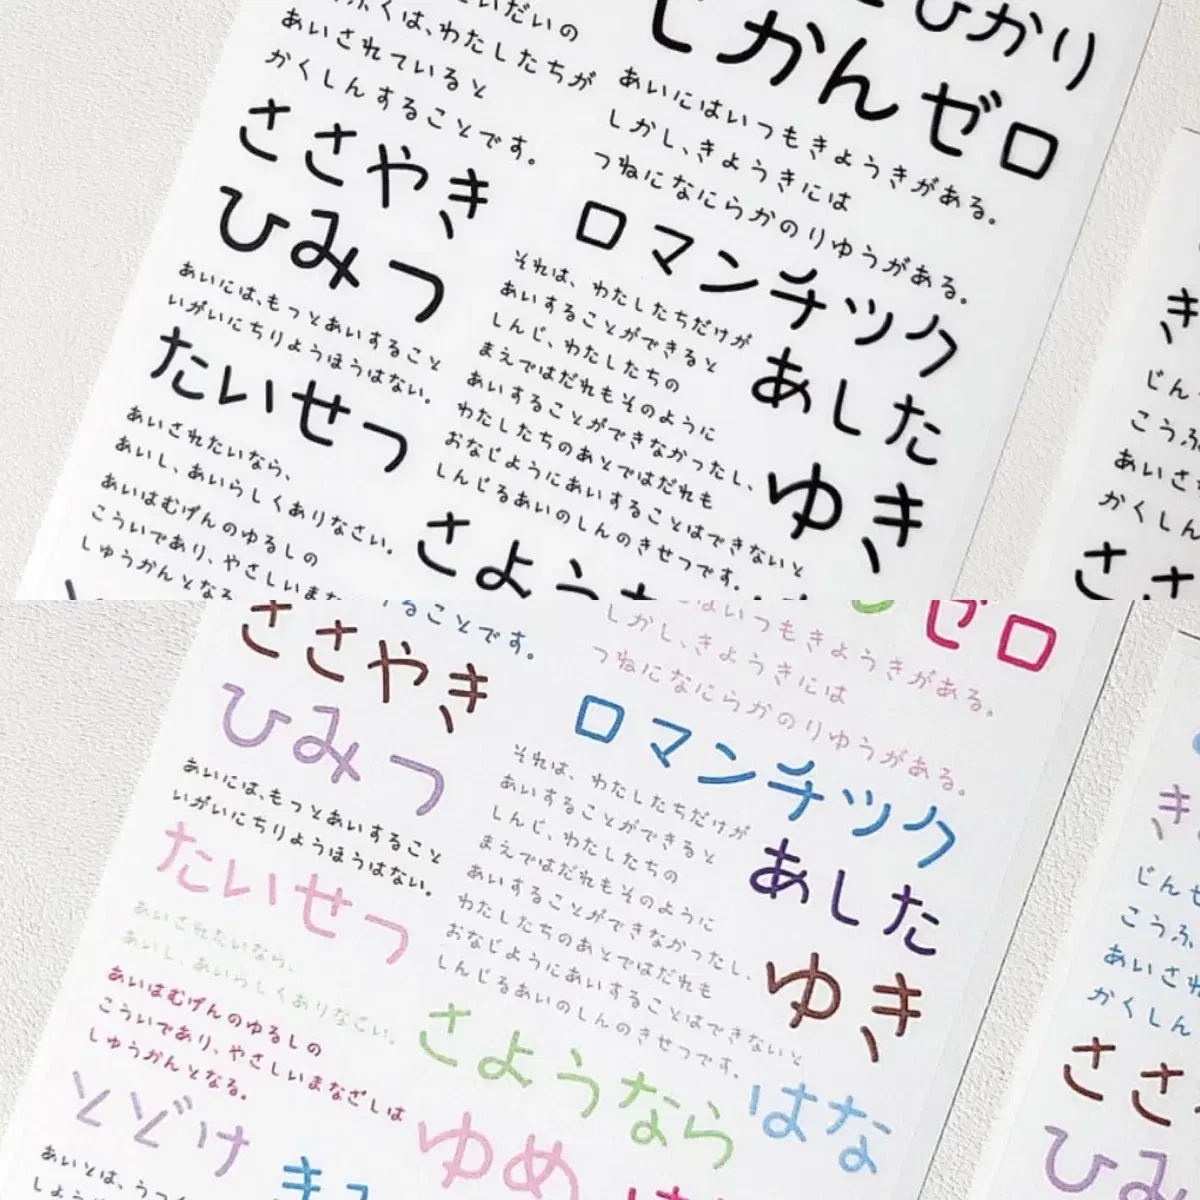 わたしたちが
あいされていると
かくしんすることです。
ささやき
ひみつ
あいには、もっとあいすること
いがいにちりようほうはない。
たいせつ
あいされたいなら、
あいし、あいらしくありなさい。
あいはむげんのゆるしの
こういであり、やさしいまな
しゅうかんとなる
ひかり
じかんゼロ
あいにはいつもきようきがある。
しかし、きようきには
つねになにらかのりゆうがある。
ロマンチック
それは、わたしたちだけが
あいすることができると
しんじ、わたしたちの
まえではだれもそのように
あいすることができなかったし、
わたしたちのあとではだれも
おなじようにあいすることはできないと
しんじるあいのしんのきせつです。
あした
ゆき
さような
き
じん
こうふ
あいさ
かくしん
ささ
ることです。
ささやき
ひみつ
あいには、もっとあいすること
いがいにちりようほうはない。
たいせつ
あいされたいなら、
あいし、あいらしくありなさい。
あいはむげんのゆるしの
こういであり、やさしいまなざしは
しゅうかんとなる。
とどけ
あいとは、うつく
しよう
ゼロ
はいつもきようきがある。
しかし、きようきには
つねになにらかのりゆうがある。
ロマンチック
それは、わたしたちだけが
あいすることができると
しんじ、わたしたちの
まえではだれもそのように
あいすることができなかったし、
わたしたちのあとではだれも
おなじようにあいすることはできないと
しんじるあいのしんのきせつです。
あした
ゆき
さようなら
はな
ゆめ
き
じんせ
こうふ
あいされ
かくしん
ささ
ひみ